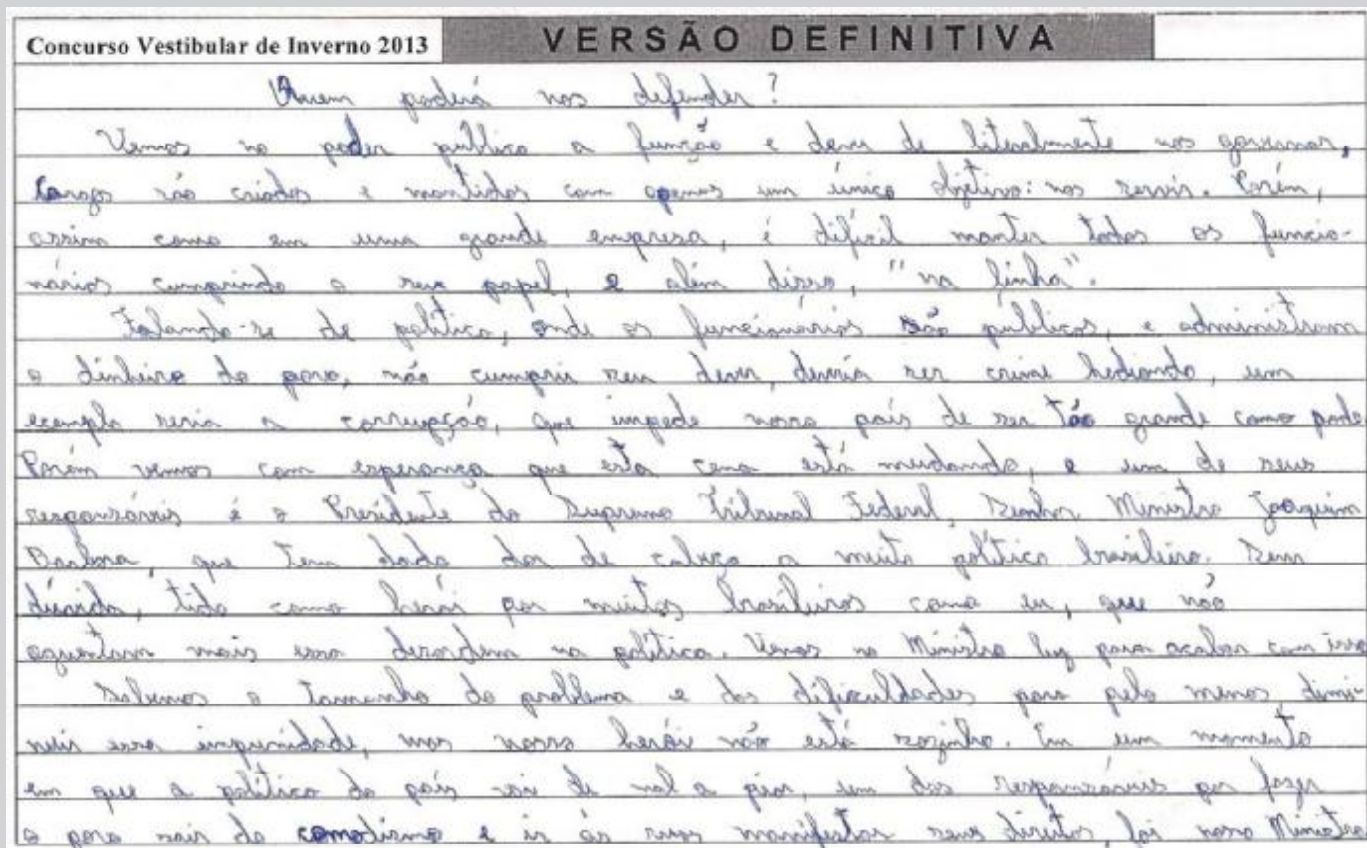 Concurso Vestibular de Inverno 2013 VERSÃO DEFINITIVA
Quem poderá nos defender?
Vemos no poder público a função e dever de literalmente nos governar,
Cargos são criados e mantidos com apenas um único objetivo: nos servir. Porém,
assim como em uma grande empresa, é difícil manter todos os funcio-
nários cumprindo o seu papel, e além disso, "na linha".
Falando-se de política, onde os funcionários são públicos, e administram
o dinheiro do povo, não cumprir seu dever, deveria ser crime hediondo, um
exemplo seria a corrupção, que impede nosso país de ser tão grande como pode.
Porém vemos com esperança que esta cena está mudando, e um de seus
responsáveis é o Presidente do Supremo Tribunal Federal, Senhor Ministro Joaquim
Barbosa, que tem dado dor de cabeça a muito político brasileiro. Sem
dúvida, tido como herói por muitos brasileiros como eu, que não
aguentam mais essa desordem na política. Vemos no Ministro luz para acabar com isso
Sabemos o tamanho do problema e das dificuldades para pelo menos dimi-
nuir essa impunidade, mas nosso herói não está sozinho. Em um momento
em que a política do país vai de mal a pior, um dos responsáveis por fazer
o povo sair do comodismo e ir às ruas manifestar seus direitos, foi nosso Ministro